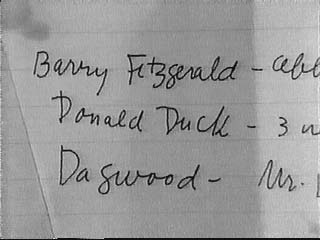 Barry Fitzgerald -
Donald Duck - 3
Dagwood - Mr.